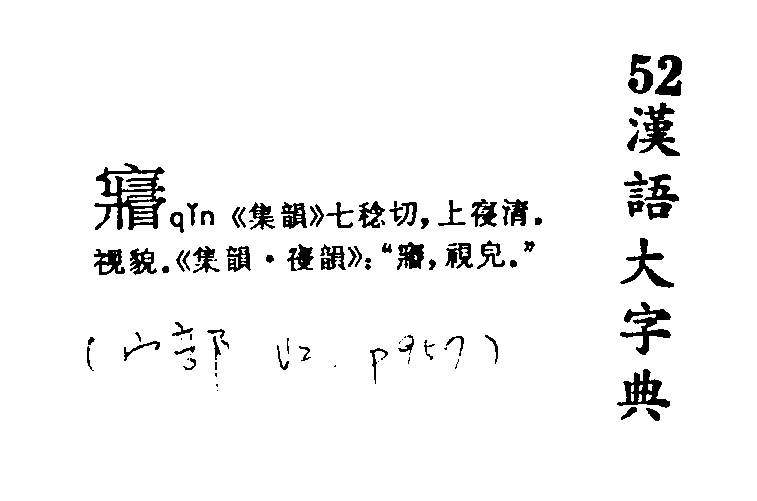 qǐn《集韻》七稔切,上寑清.
视貌.《集韻·寑韻》:“,視皃.”
(宀部 V2. p957)
52
漢語大字典